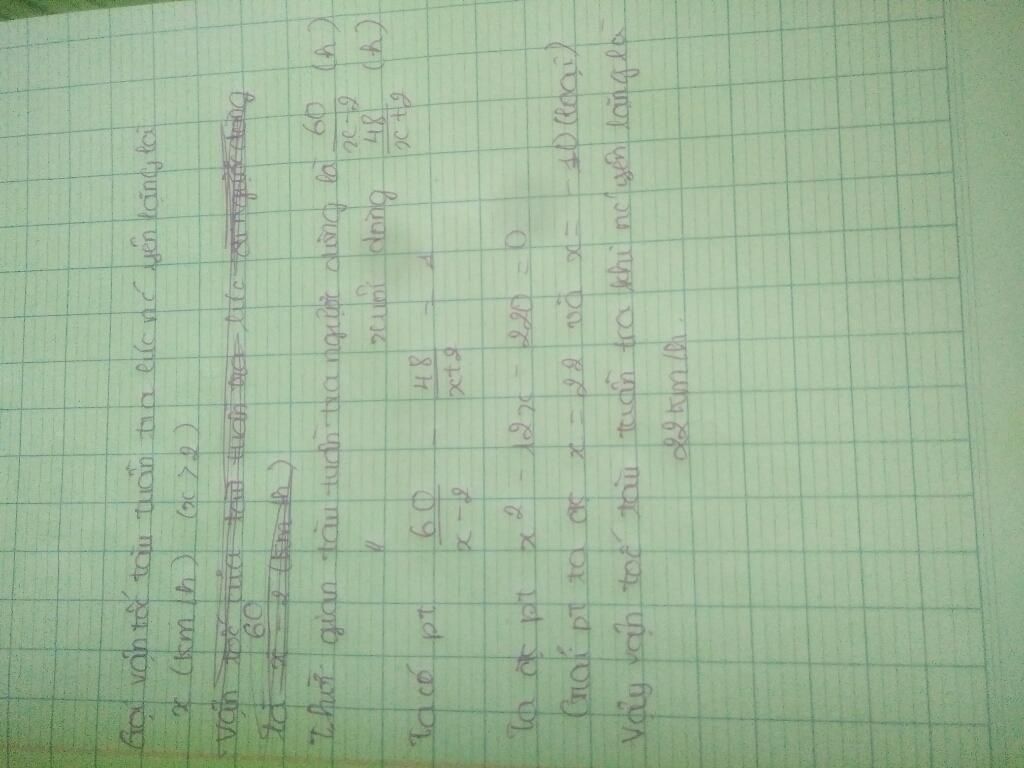 Gọi vận tốc tàu tuần tra lúc nc yên lặng là
x (km/h) (x > 2)
Vận tốc của tàu tuần tra lúc đi ngược dòng
là 60/x-2 (km/h)
Thời gian tàu tuần tra ngược dòng là 60/x-2 (h)
" xuôi dòng 48/x+2 (h)
Ta có pt 60/x-2 - 48/x+2 = 1
Ta đc pt x² - 12x - 220 = 0
Giải pt ta đc x = 22 và x = -10 (loại)
Vậy vận tốc tàu tuần tra khi nc yên lặng là
22km/h.